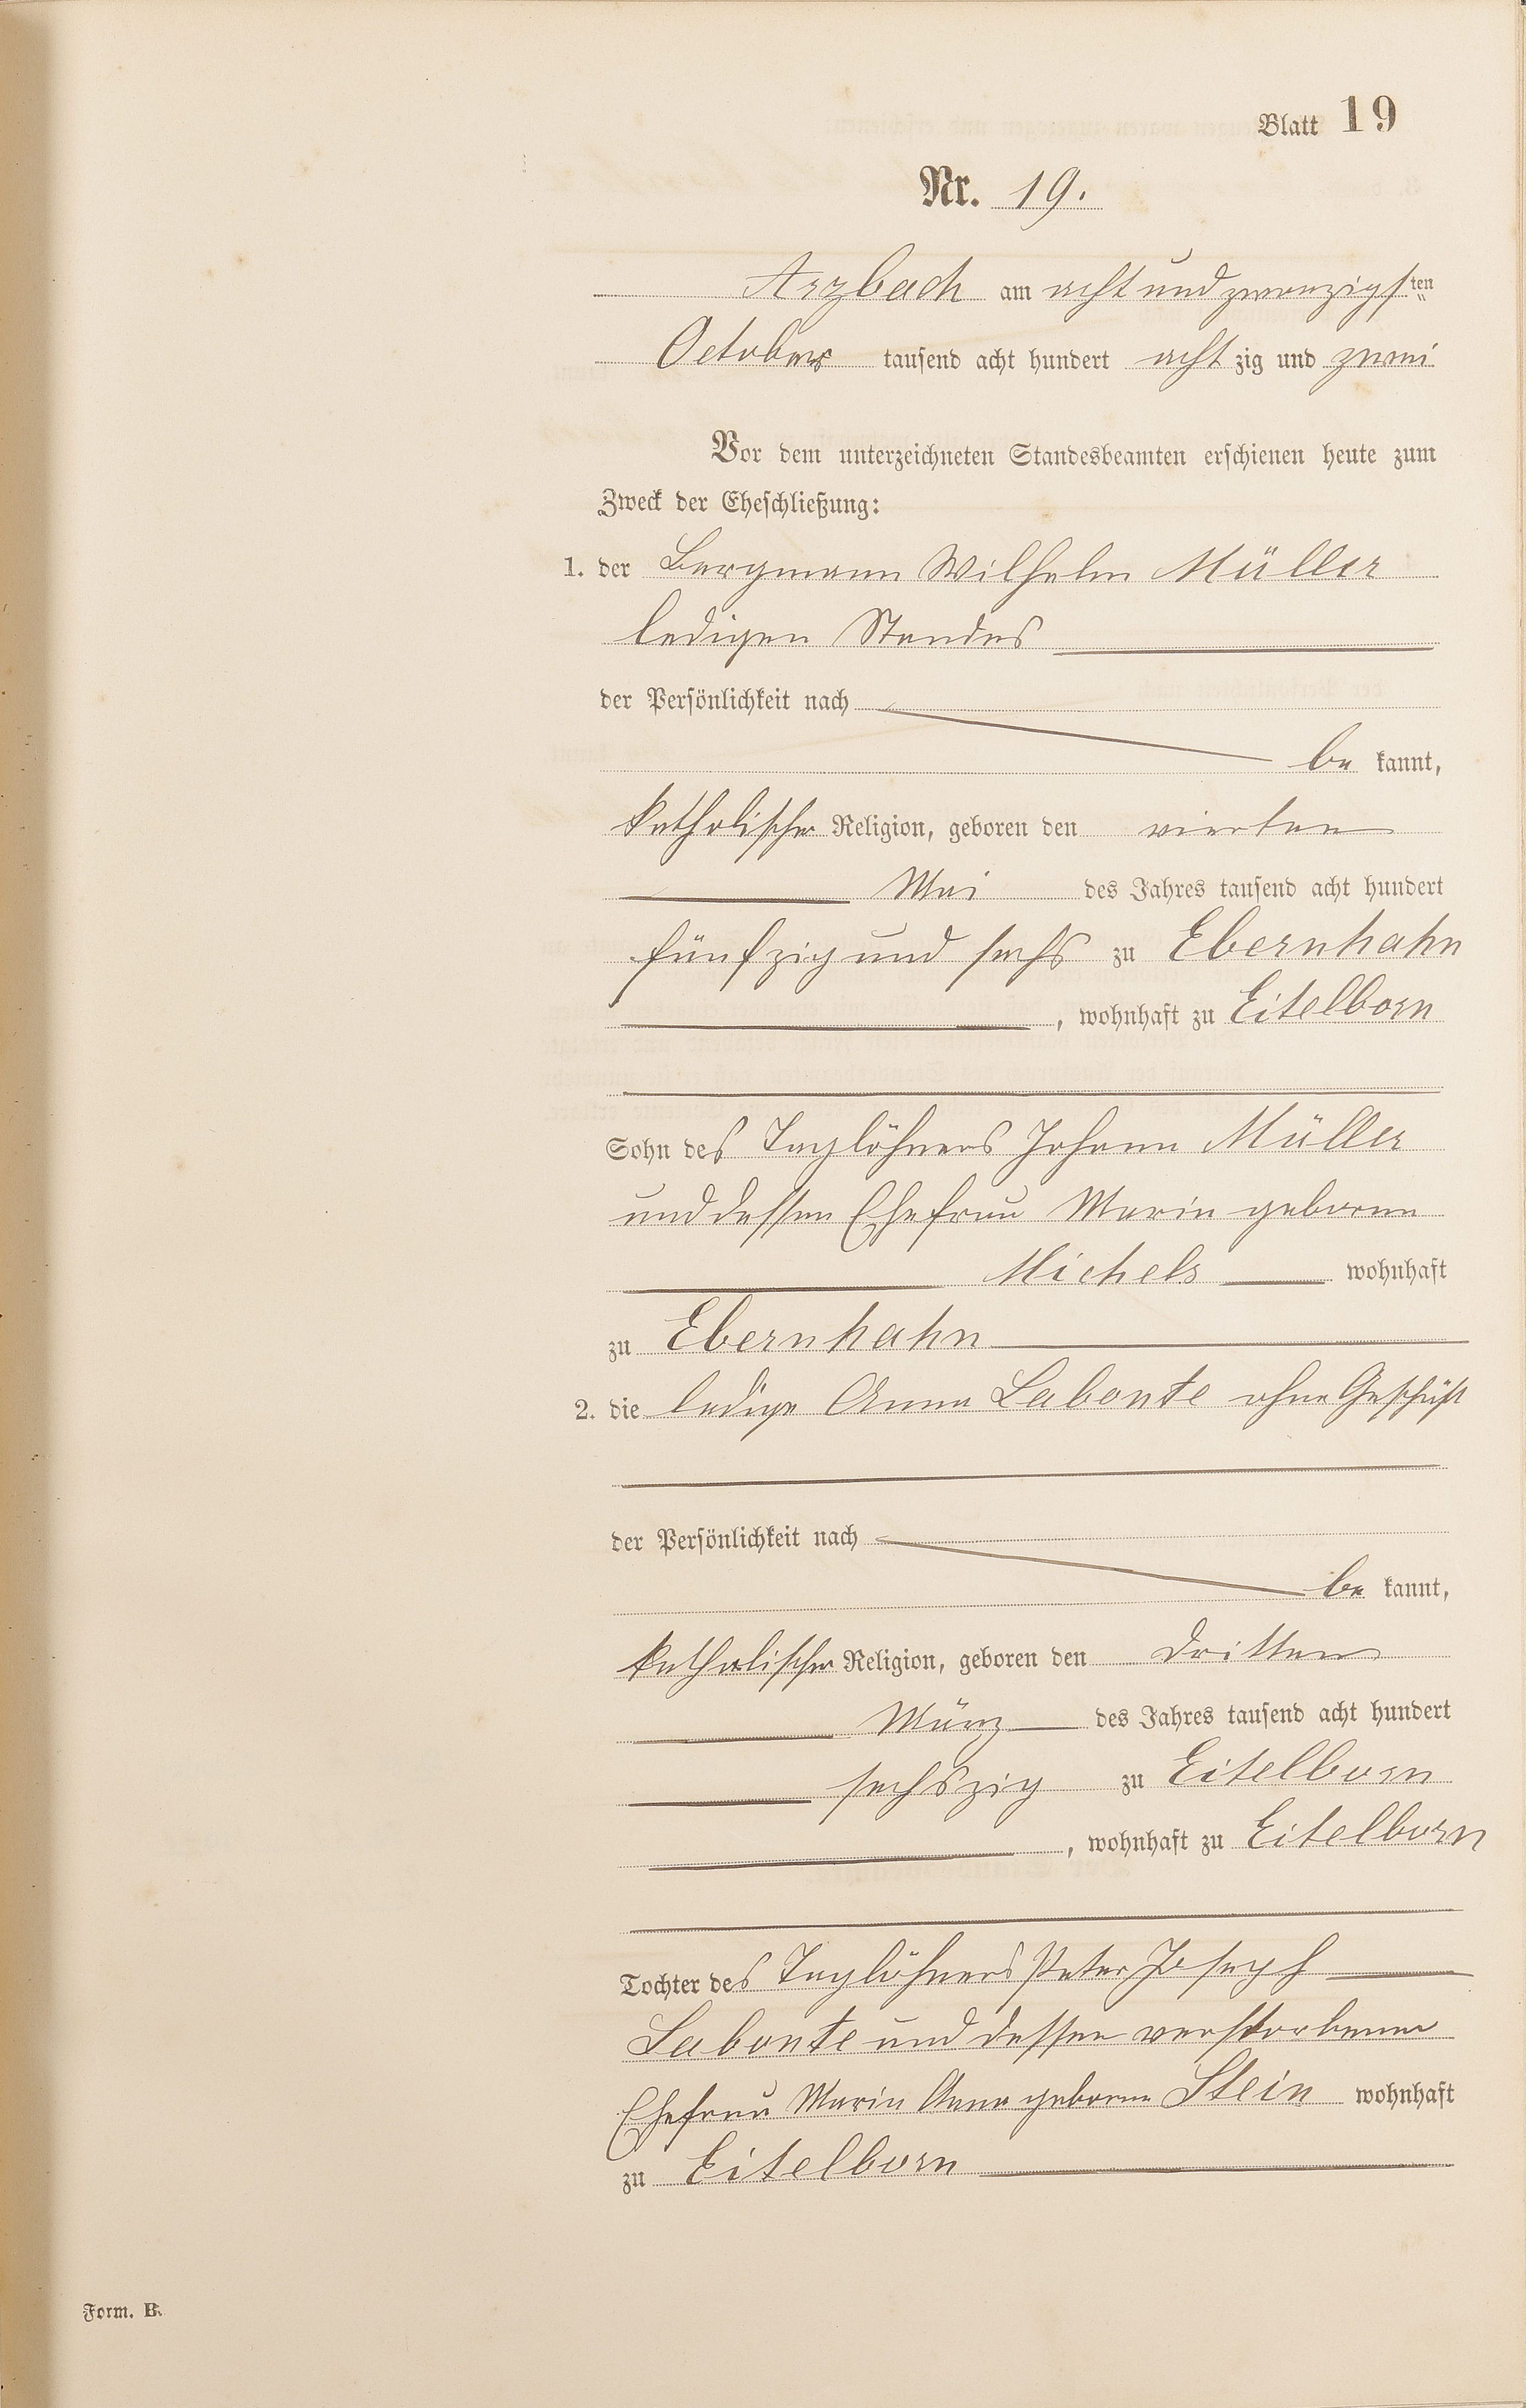 Blatt 19
Nr. 19.
Arzbach am acht und zwanzigsten
October tausend acht hundert achtzig und zwei
Vor dem unterzeichneten Standesbeamten erschienen heute zum
Zweck der Eheschließung:
1. der Bergmann Wilhelm Müller
ledigen Standes
der Persönlichkeit nach
bekannt,
katholischer Religion, geboren den vierten
Mai des Jahres tausend acht hundert
fünfzig und sechs zu Ebernhahn
, wohnhaft zu Eitelborn
Sohn des Taglöhners Johann Müller
und dessen Ehefrau Maria geborene
Michels wohnhaft
zu Ebernhahn
2. die ledige Anna Labonte ohne Geschäft
der Persönlichkeit nach
bekannt,
katholischer Religion, geboren den dritten
März des Jahres tausend acht hundert
sechszig zu Eitelborn
, wohnhaft zu Eitelborn
Tochter des Taglöhners Peter Joseph
Labonte und dessen verstorbenen
Ehefrau Maria Anna geborene Stein wohnhaft
zu Eitelborn
Form. B.